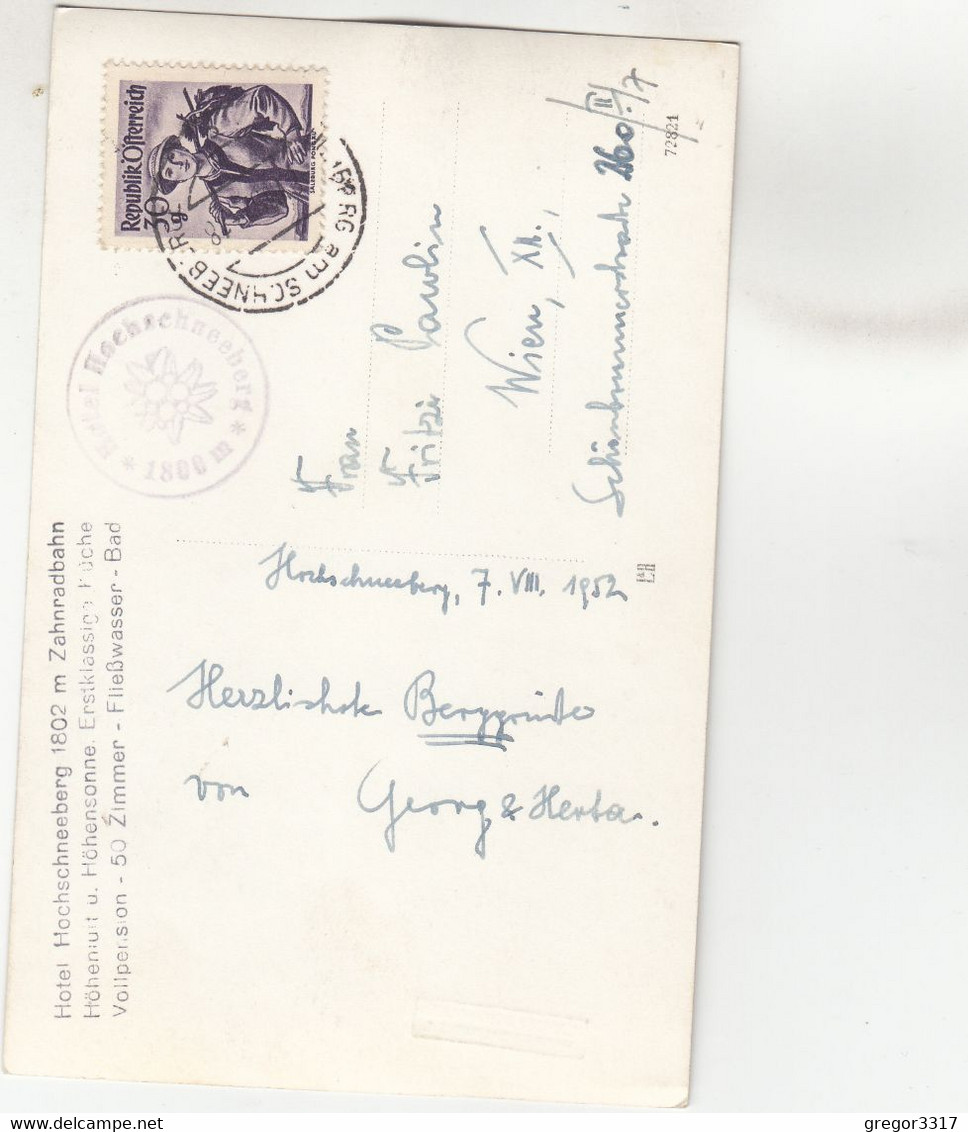 Hotel Hochschneeberg 1802 m Zahnradbahn
Höhenluft u. Höhensonne. Erstklassige Küche
Vollpension - 50 Zimmer - Fließwasser - Bad
Republik Österreich
30g
SALZBURG PONGAU
BERG am SCHNEEBERG
Hotel Hochschneeberg
* 1800 m *
Frau
Fritzi Pawlin
Wien, XII.,
Schönbrunnerstraße 260/II/7
72821
Hochschneeberg, 7. VIII. 1952
Herzlichste Berggrüße
von Georg & Herta.
gregor3317